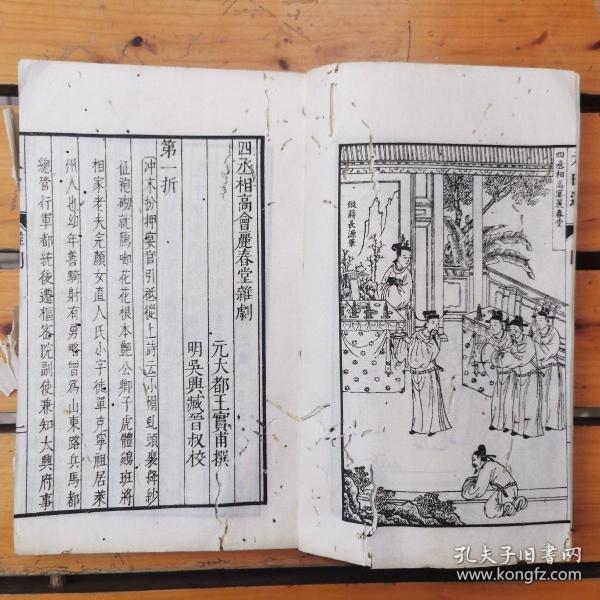 四丞相高宴麗春堂
倣蔣長源筆
四丞相高會麗春堂雜劇
元大都王實甫撰
明吳興臧晉叔校
第一折
沖末扮押宴官引祗從上詩云小帽虬頭裹絳紗
征袍砌就鴈啣花花根本艷公卿子虎體鵷班將
相家老夫完顏女直人氏小字徒單克寧祖居萊
州人也幼年善騎射有勇略曾爲山東路兵馬都
總管行軍都統後遷樞密院副使兼知大興府事
孔夫子旧书网
www.kongfz.com